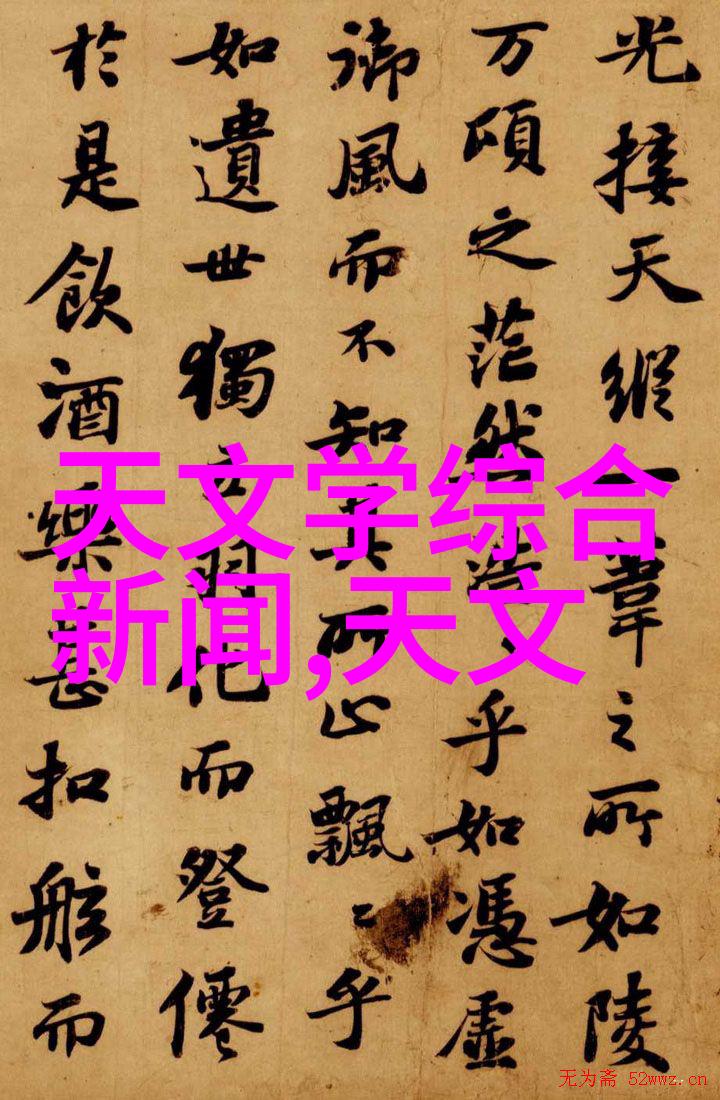 光接天縱一葦之所如陵
万頃之茫然浩〻乎如憑虛
御風而不知其所止飄〻乎
如遺世獨立羽化而登僊
於是飲酒樂甚扣舷而
天文学综合
新闻,天文
无为斋 52wwz.cn